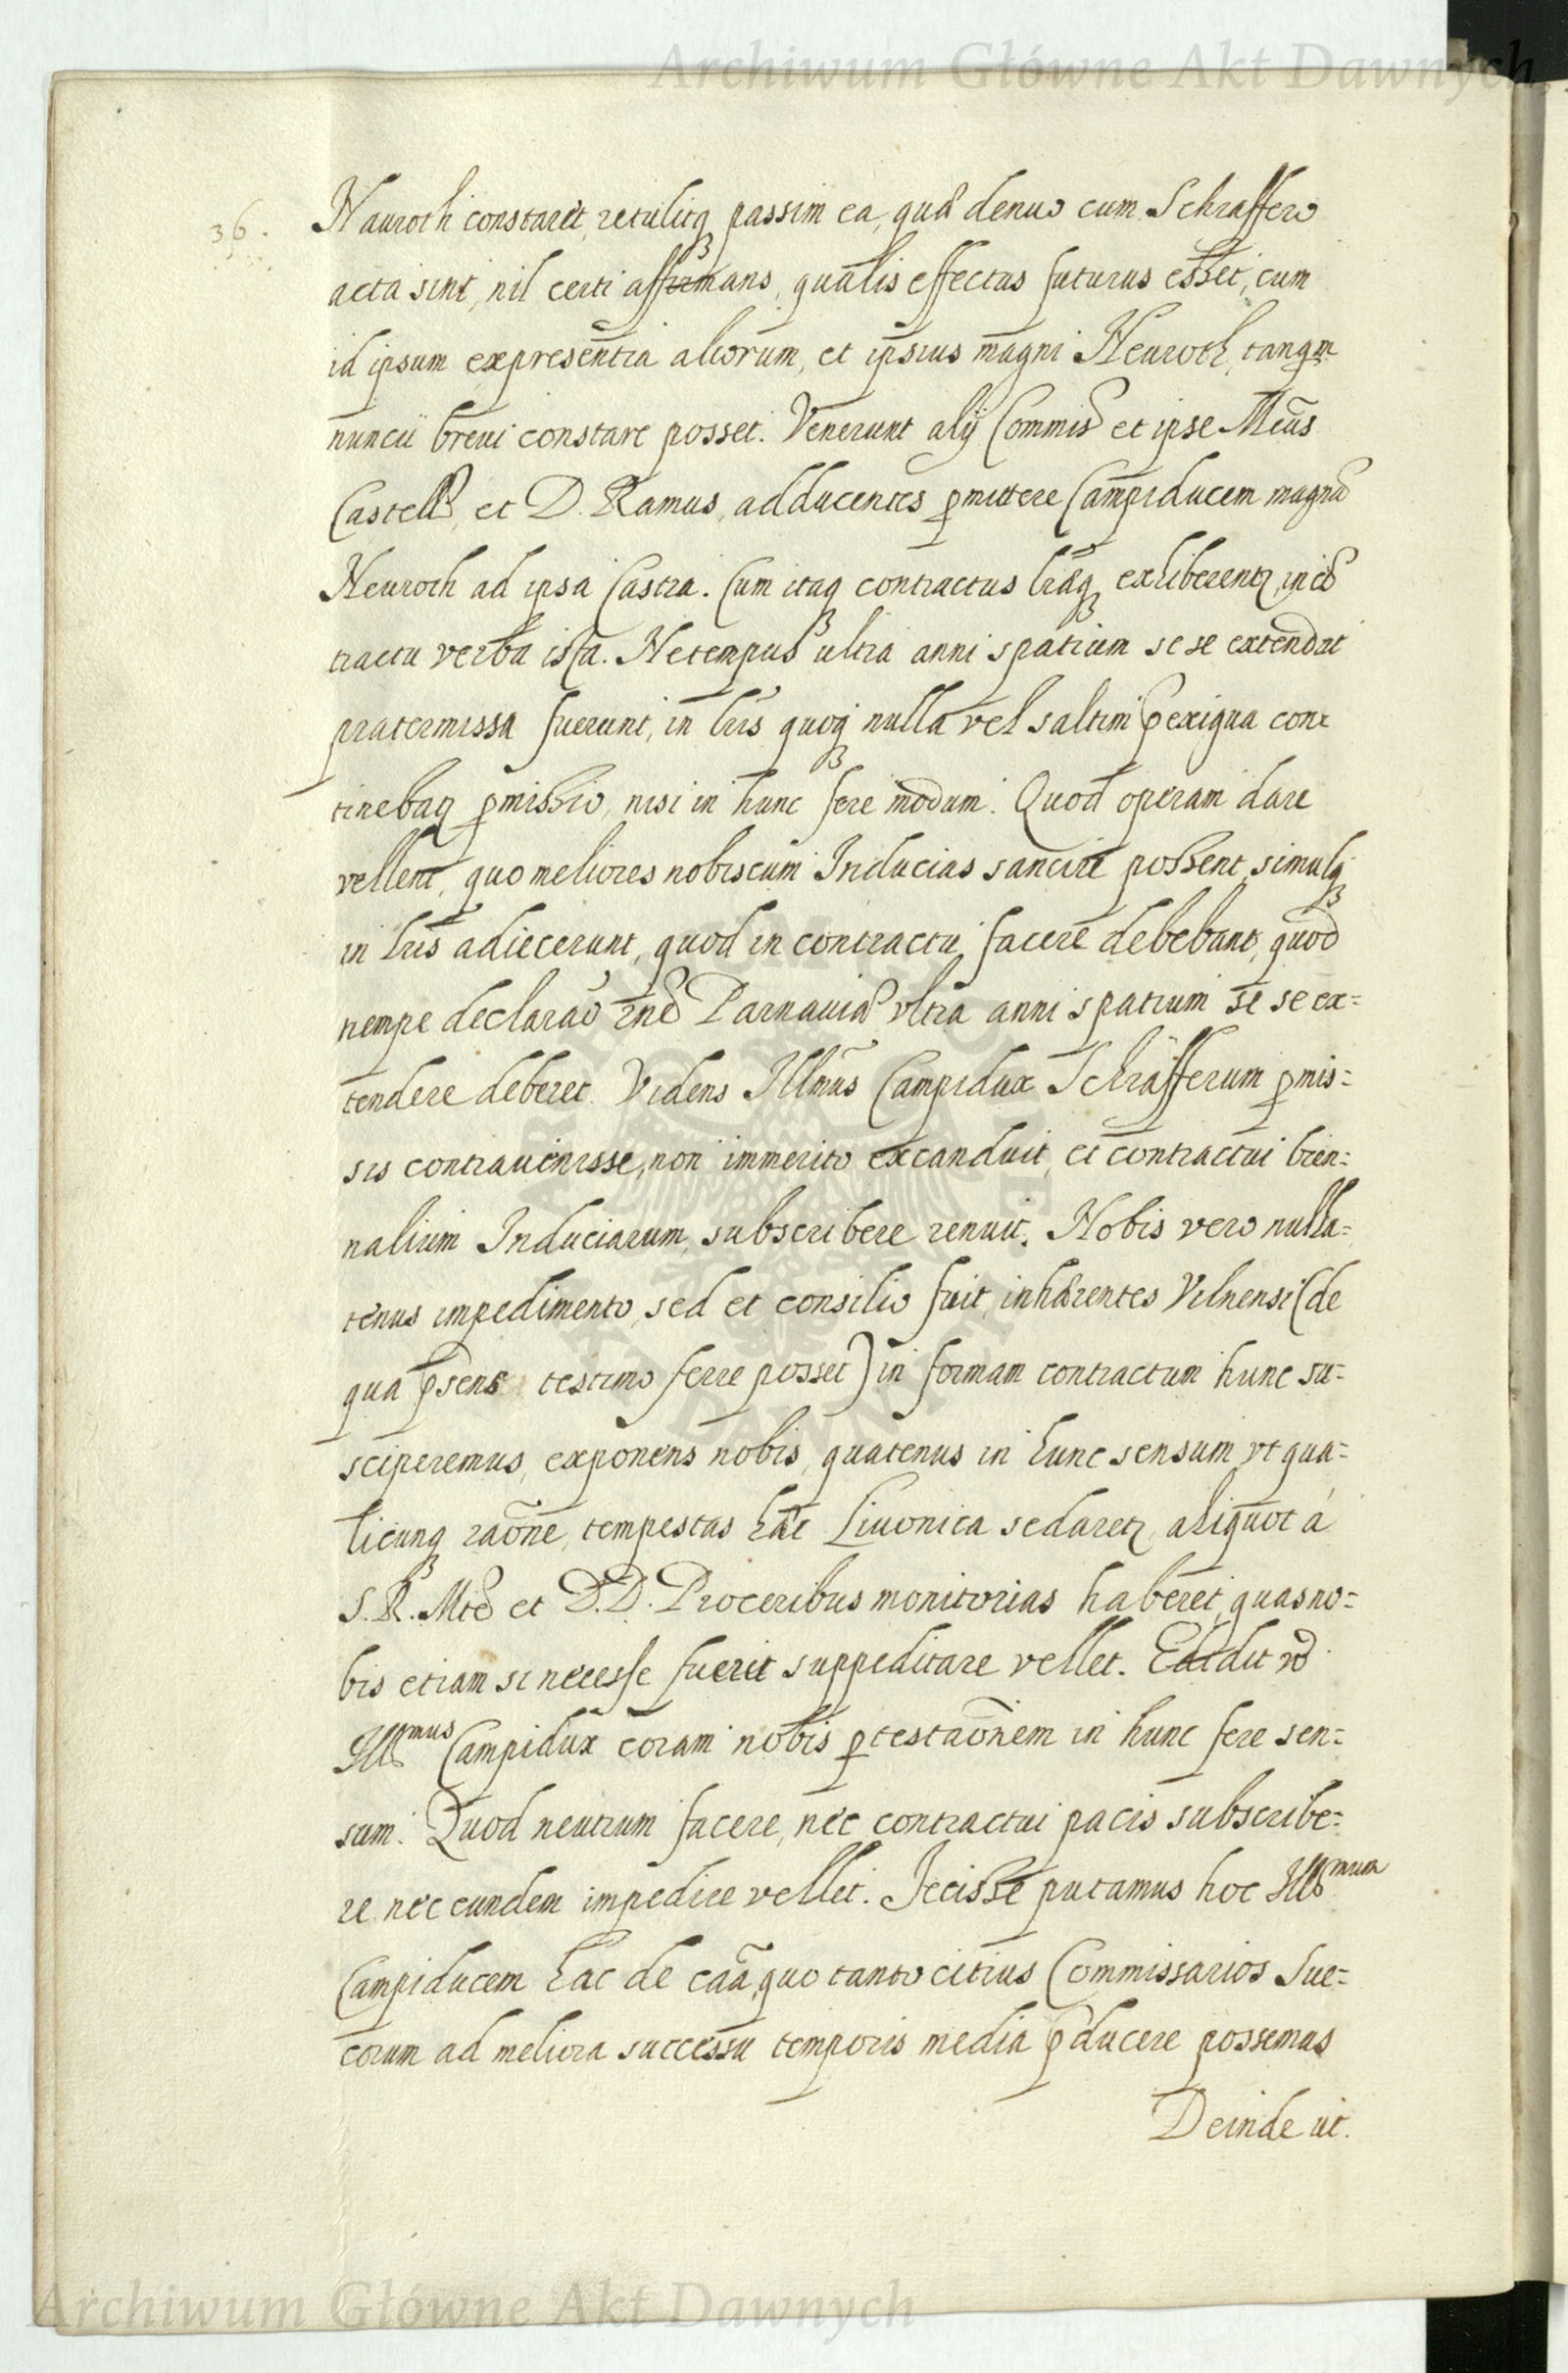 Archiwum Główne Akt Dawnych
36.
Nauroth constaret, retulitq passim ea, quæ denuo cum Schraffero
acta sint, nil certi affirmans, qualis effectus futurus esset, cum
id ipsum ex presentia aliorum, et ipsius magni Neuroth, tanqm
nuncii brevi constare posset. Venerunt alij Commis et ipse Mcus
Castell, et D. Ramus, adducentes pmittere Campiducem magno
Neuroth ad ipsa Castra. Cum itaq contractus lræq exhiberentr, in co
tractu verba ista. Ne tempus ultra anni spatium se se extendat
prætermissa fuerunt, in lris quoq nulla vel saltim pexigua con
tinebatr pmissio, nisi in hunc fere modum. Quod operam dare
vellent, quo meliores nobiscum Inducias sancire possent, simulq
in lris adiecerunt, quod in contractu facere debebant, quod
nempe declarao Parnaviæ vltra anni spatium se se ex=
tendere deberet. Videns Illmus Campidux Schräfferum pmis=
sis contravenisse, non immerito excanduit, et contractui bien=
nalium Induciarum subscribere renuit. Nobis vero nulla=
tenus impedimento, sed et consilio fuit, inhærentes Vilnensi (de
qua psens testimo ferre posset) in formam contractum hunc su=
sciperemus, exponens nobis, quatenus in hunc sensum vt qua=
licunq raone, tempestas hæc Livonica sedaretr, aliquot á
S. R. Mte et D.D. Proceribus monitorias haberet, quas no=
bis etiam si necesse fuerit suppeditare vellet. Edidit vo
Illmus Campidux coram nobis ptestaonem in hunc fere sen=
sum. Quod neutrum facere, nec contractui pacis subscribe=
re nec eundem impedire vellet. Fecisse putamus hoc Illmum
Campiducem hac de caa, quo tanto citius Commissarios Sue=
corum ad meliora successu temporis media pducere possemus
Deinde ut.
Archiwum Główne Akt Dawnych